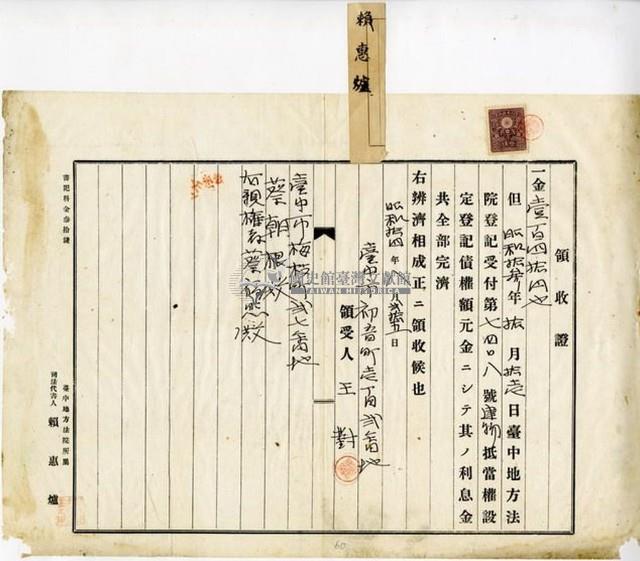 賴惠爐
領收證
一金壹百四拾円也
但昭和拾參年拾月拾壱日臺中地方法
院登記受付第七四〇八號建物抵當權設
定登記債權額元金ニシテ其ノ利息金
共全部完濟
右辨濟相成正ニ領收候也
昭和拾四年 月貳拾五日
臺中市初音町壱丁目貳番地
領受人 王對
臺中市梅枝町貳七番地
蔡朝
殿
書記料金參拾錢
臺中地方法院所屬
司法代書人 賴惠爐
國史館臺灣文獻館
TAIWAN HISTORICA
60